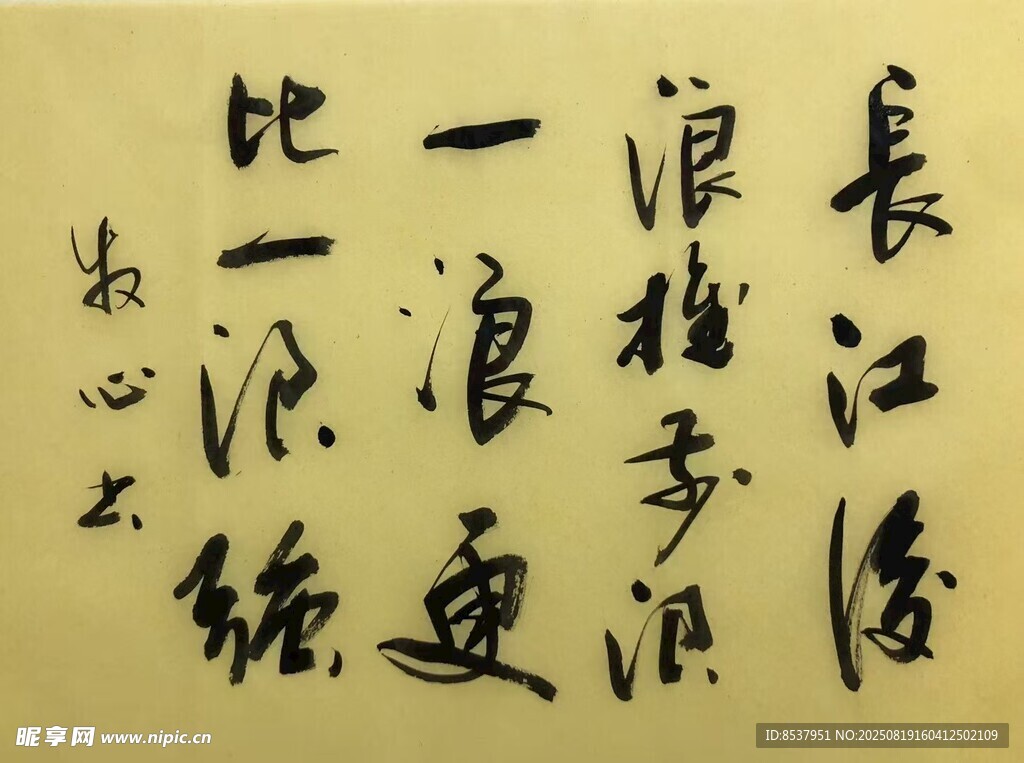 長江後
浪推前浪
一浪更
比一浪強
牧心书
昵享网 www.nipic.cn
ID:8537951 NO:20250819160412502109